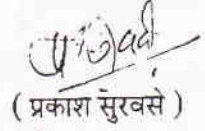 ( प्रकाश सुरवसे )